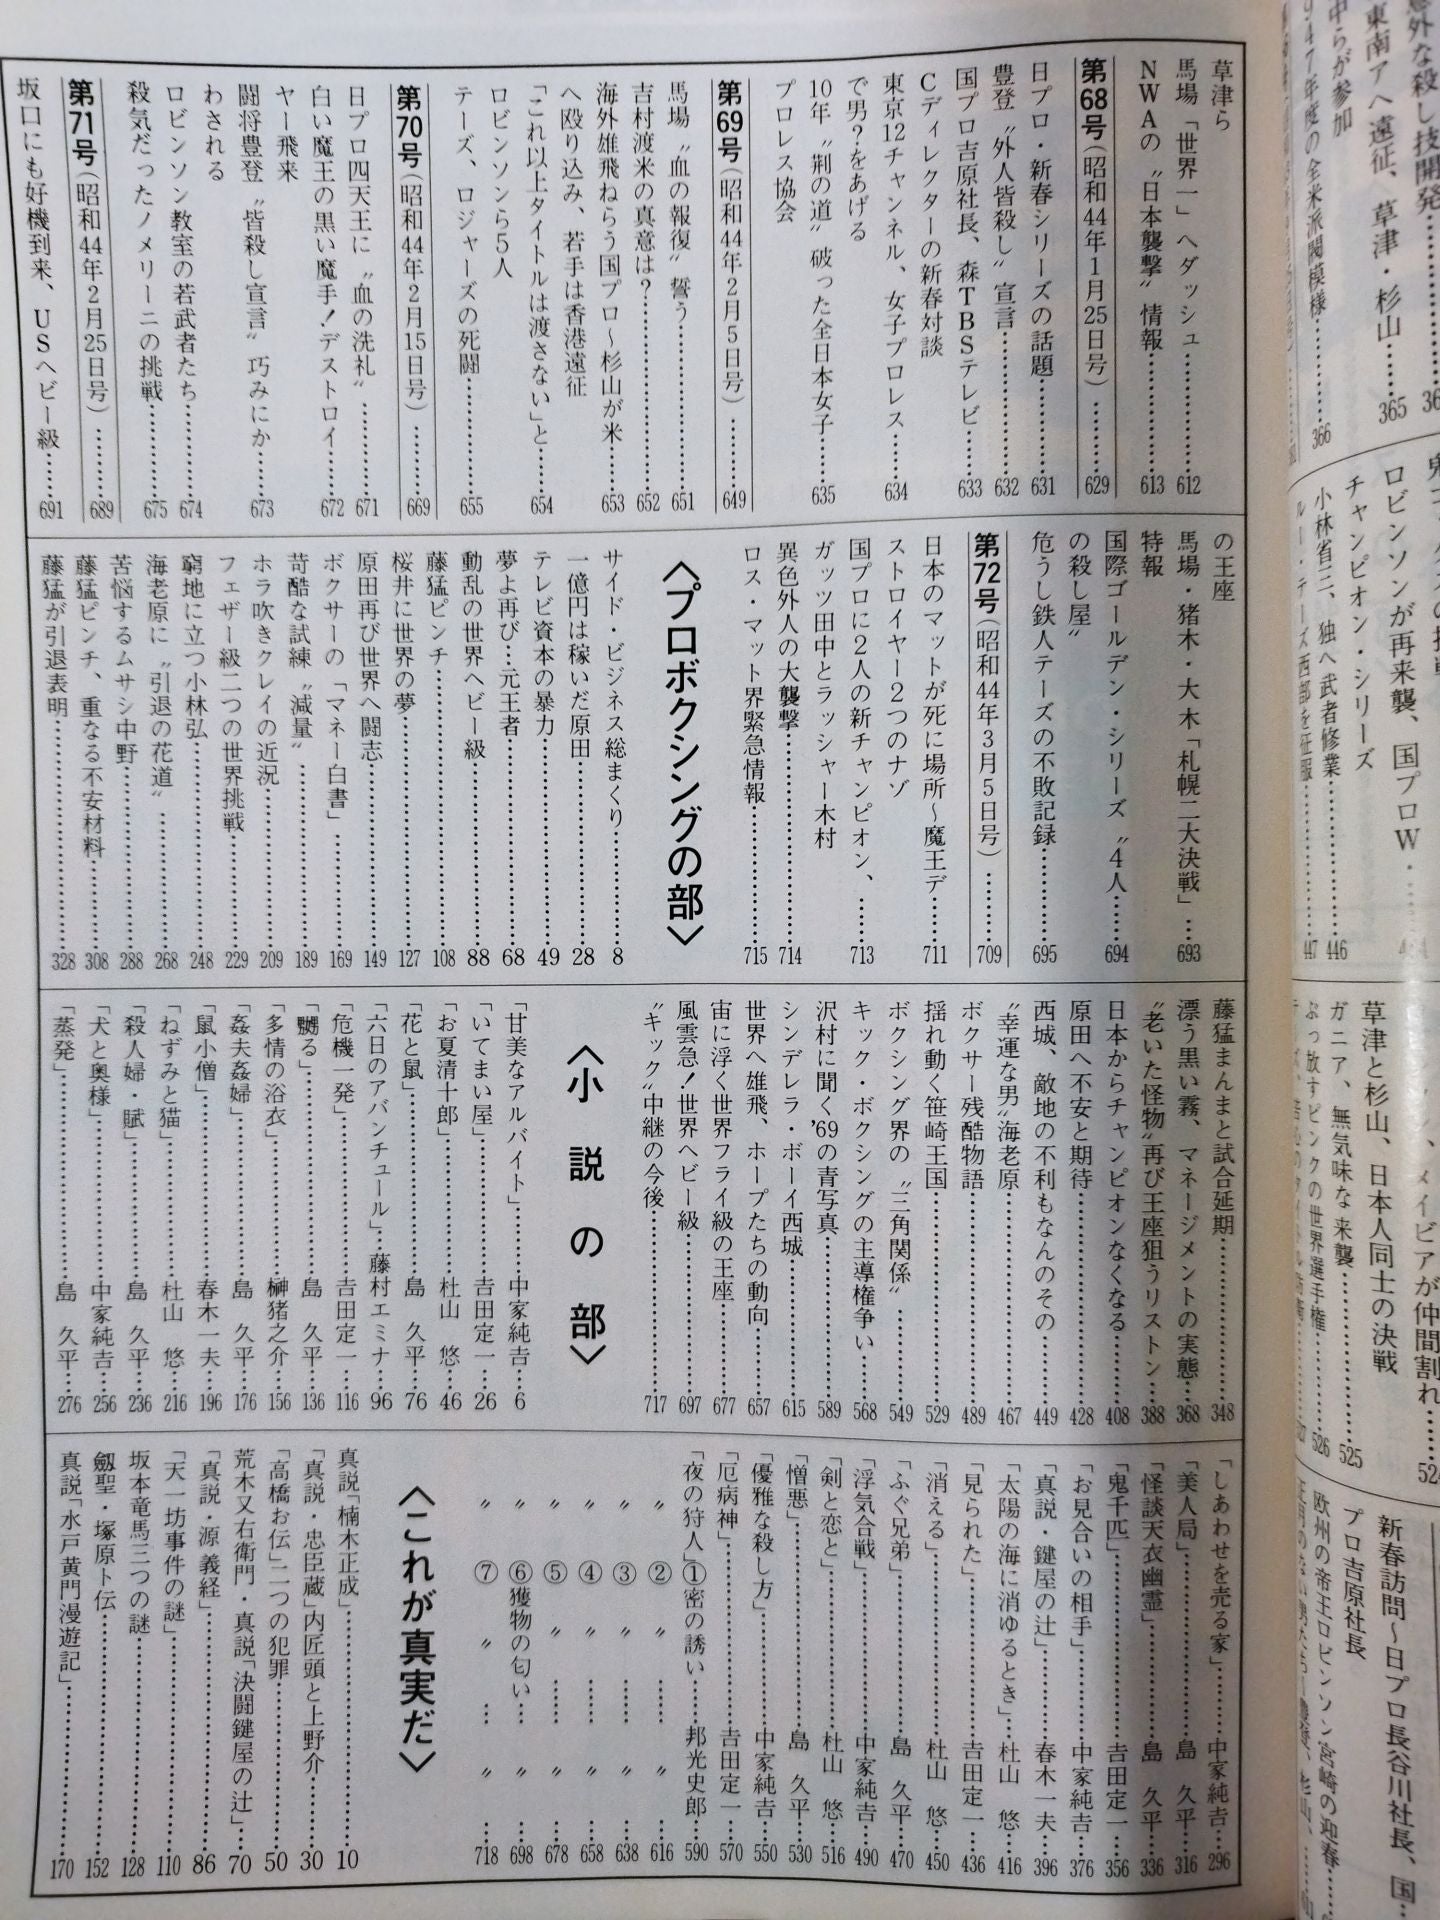 草津ら
馬場「世界一」へダッシュ……612
NWAの〝日本襲撃〟情報……613
第68号（昭和44年1月25日号）……629
日プロ・新春シリーズの話題……631
豊登〝外人皆殺し〟宣言……632
国プロ吉原社長、森TBSテレビ……633
Cディレクターの新春対談
東京12チャンネル、女子プロレス……634
で男？をあげる
10年〝荆の道〟破った全日本女子……635
プロレス協会
第69号（昭和44年2月5日号）……649
馬場〝血の報復〟誓う……651
吉村渡米の真意は？……652
海外雄飛ねらう国プロ～杉山が米……653
へ殴り込み、若手は香港遠征
「これ以上タイトルは渡さない」と……654
ロビンソンら5人
テーズ、ロジャースの死闘……655
第70号（昭和44年2月15日号）……669
日プロ四天王に〝血の洗礼〟……671
白い魔王の黒い魔手！デストロイ……672
ヤー飛来
闘将豊登〝皆殺し宣言〟巧みにか……673
わされる
ロビンソン教室の若武者たち……674
殺気だったノメリーニの挑戦……675
第71号（昭和44年2月25日号）……689
坂口にも好機到来、USヘビー級……691
の王座
馬場・猪木・大木「札幌二大決戦」…693
特報
国際ゴールデン・シリーズ〝4人……694
の殺し屋〟
危うし鉄人テーズの不敗記録……695
第72号（昭和44年3月5日号）……709
日本のマットが死に場所～魔王デ……711
ストロイヤー2つのナゾ
国プロに2人の新チャンピオン、……713
ガッツ田中とラッシャー木村
異色外人の大襲撃……714
ロス・マット界緊急情報……715
〈プロボクシングの部〉
サイド・ビジネス総まくり……8
一億円は稼いだ原田……28
テレビ資本の暴力……49
夢よ再び…元王者……68
動乱の世界ヘビー級……88
藤猛ピンチ……108
桜井に世界の夢……127
原田再び世界へ闘志……149
ボクサーの「マネー白書」……169
苛酷な試練〝減量〟……189
ホラ吹きクレイの近況……209
フェザー級二つの世界挑戦……229
窮地に立つ小林弘……248
海老原に〝引退の花道〟……268
苦悩するムサシ中野……288
藤猛ピンチ、重なる不安材料……308
藤猛が引退表明……328
藤猛まんまと試合延期……348
漂う黒い霧、マネージメントの実態…368
〝老いた怪物〟再び王座狙うリストン…388
日本からチャンピオンなくなる……408
原田へ不安と期待……428
西城、敵地の不利もなんのその……449
〝幸運な男〟海老原……467
ボクサー残酷物語……489
揺れ動く笹崎王国……529
ボクシング界の〝三角関係〟……549
キック・ボクシングの主導権争い……568
沢村に聞く'69の青写真……589
シンデレラ・ボーイ西城……615
世界へ雄飛、ホープたちの動向……657
宙に浮く世界フライ級の王座……677
風雲急！世界ヘビー級……697
〝キック〟中継の今後……717
〈小説の部〉
「甘美なアルバイト」……中家純吉…6
「いてまい屋」……吉田定一…26
「お夏清十郎」……杜山　悠…46
「花と鼠」……島　久平…76
「六日のアバンチュール」…藤村エミナ…96
「危機一発」……吉田定一…116
「嬲る」……島　久平…136
「多情の浴衣」……榊猪之介…156
「姦夫姦婦」……島　久平…176
「鼠小僧」……春木一夫…196
「ねずみと猫」……杜山　悠…216
「殺人婦・賦」……島　久平…236
「犬と奥様」……中家純吉…256
「蒸発」……島　久平…276
「しあわせを売る家」……中家純吉…296
「美人局」……島　久平…316
「怪談天衣幽霊」……島　久平…336
「鬼千匹」……吉田定一…356
「お見合いの相手」……中家純吉…376
「真説・鍵屋の辻」……春木一夫…396
「太陽の海に消ゆるとき」…杜山　悠…416
「見られた」……吉田定一…436
「消える」……杜山　悠…450
「ふぐ兄弟」……島　久平…470
「浮気合戦」……中家純吉…490
「剣と恋と」……杜山　悠…516
「憎悪」……島　久平…530
「優雅な殺し方」……中家純吉…550
「厄病神」……吉田定一…570
「夜の狩人」①密の誘い……邦光史郎…590
〃　②　〃　……　〃　…616
〃　③　〃　……　〃　…638
〃　④　〃　……　〃　…658
〃　⑤　〃　……　〃　…678
〃　⑥獲物の匂い……　〃　…698
〃　⑦　〃　……　〃　…718
〈これが真実だ〉
真説「楠木正成」……10
「真説・忠臣蔵」内匠頭と上野介……30
「高橋お伝」二つの犯罪……50
荒木又右衛門・真説「決闘鍵屋の辻」…70
「真説・源義経」……86
「天一坊事件の謎」……110
坂本竜馬三つの謎……128
劔聖・塚原卜伝……152
真説「水戸黄門漫遊記」……170
意外な殺し技開発……
東南アへ遠征、草津・杉山……365
中らが参加
947年度の全米派閥模様……366
ロビンソンが再来襲、国プロW・
チャンピオン・シリーズ
小林省三、独へ武者修業……446
ルー・テーズ西部を征服……447
メイビアが仲間割れ……524
草津と杉山、日本人同士の決戦
ガニア、無気味な来襲……525
ぶっ放すピンクの世界選手権……526
新春訪問～日プロ長谷川社長、国…
プロ吉原社長
欧州の帝王ロビンソン宮崎の迎春……